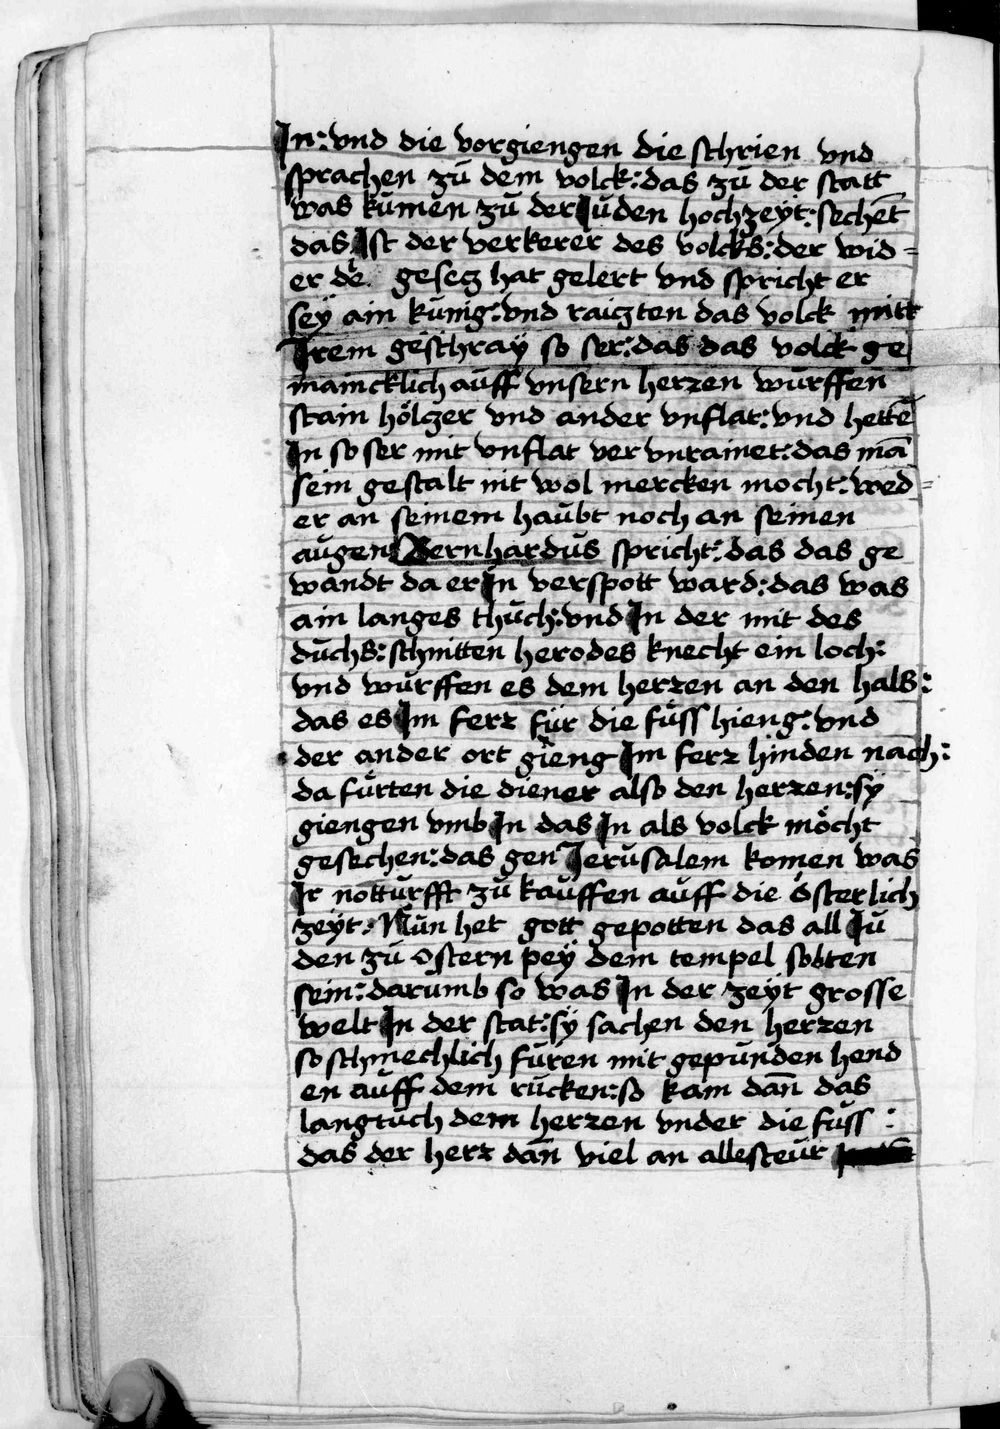 In: vnd die vorgiengen die schrien vnd
sprachen zů dem volck: das zů der statt
was kůmen zů der Iůden hochzeyt: sechēt
das Ist der verkerer des volcks: der wid=
er dē gesecz hat gelert vnd spricht er
seÿ ain kůnig: vnd raiczten das volck mitt
Irem geschraÿ so ser: das das volck ge
maincklich aůff vnsern herren wůrffen
stain hölczer vnd ander vnflat: vnd hettē
In so ser mit vnflat ver vnrainet: das mā
sein gestalt nit wol mercken mocht: wed=
er an seinem haůbt noch an seinen
aůgen Bernhardůs spricht: das das ge
wandt da er In verspott ward: das was
ain langes thůch: vnd In der mit des
důchs: schnitten herodes knecht ein loch:
vnd wůrffen es dem herren an den hals:
das es Im ferr für die füss hieng: vnd
der ander ort gieng Im ferr hinden nach:
da fürten die diener also den herren: sÿ
giengen vmb In das In als volck möcht
gesechen: das gen Jerůsalem komen was
Ir nottůrfft zů kaůffen aůff die österlich
zeÿt: Nůn het gott gepotten das all Iů
den zů ostern peÿ dem tempel solten
sein: darumb so was In der zeÿt grosse
welt In der stat: sÿ sachen den herren
so schmechlich füren mit gepůnden hend
en aůff dem růcken: so kam dañ das
langtůch dem herren vnder die füss:
das der herr dañ viel an allesteůr